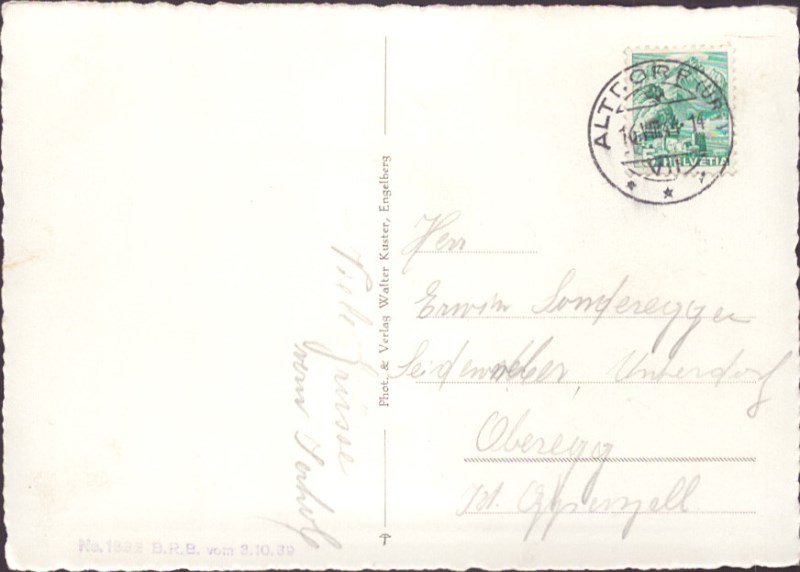 ALTDORF (URI)
10.VIII.44-14
VIII
5 HELVETIA
Phot. & Verlag Walter Kuster, Engelberg
Viele
Grüsse
vom
Herr
Erwin Sonderegger
Seidenweber, Unterdorf
Oberegg
Kt. Appenzell
No. 1882 B.R.B. vom 3.10.39